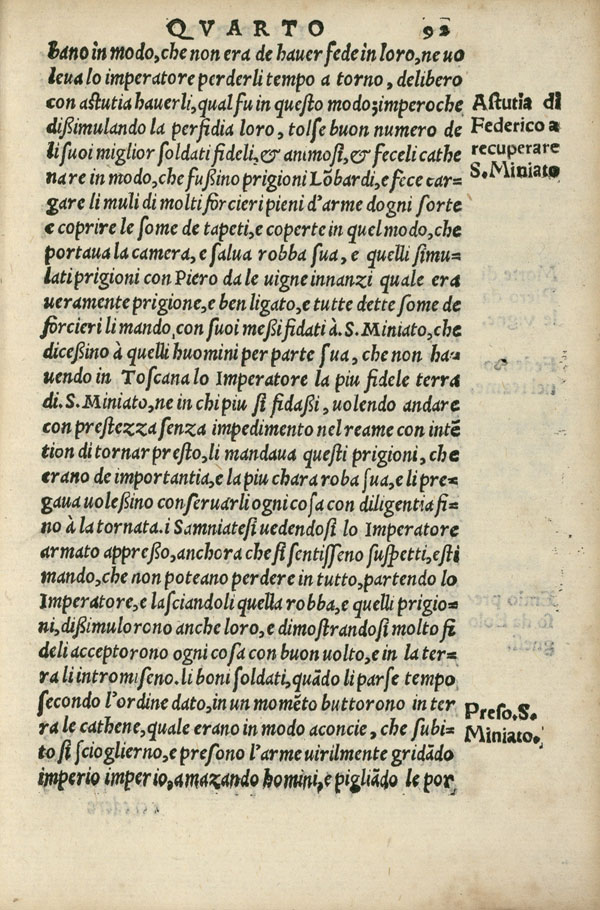 QVARTO 92
bano in modo, che non era de hauer fede in loro, ne uo
leua lo imperatore perderli tempo a torno, delibero
con astutia hauerli, qual fu in questo modo; imperoche
dißimulando la perfidia loro, tolse buon numero de
li suoi miglior soldati fideli, & animosi, & feceli cathe
nare in modo, che fußino prigioni Lõbardi, e fece car=
gare li muli di molti forcieri pieni d'arme dogni sorte
e coprire le some de tapeti, e coperte in quel modo, che
portaua la camera, e salua robba sua, e quelli simu=
lati prigioni con Piero da le uigne innanzi quale era
ueramente prigione, e ben ligato, e tutte dette some de
forcieri li mando, con suoi meßi fidati à. S. Miniato, che
diceßino à quelli huomini per parte sua, che non ha=
uendo in Toscana lo Imperatore la piu fidele terra
di. S. Miniato, ne in chi piu si fidaßi, uolendo andare
con prestezza senza impedimento nel reame con intẽ
tion di tornar presto, li mandaua questi prigioni, che
erano de importantia, e la piu chara roba sua, e li pre=
gaua uoleßino conseruarli ogni cosa con diligentia fi=
no à la tornata. i Samniatesi uedendosi lo Imperatore
armato appreßo, anchora che si sentisseno suspetti, esti
mando, che non poteano perdere in tutto, partendo lo
Imperatore, e lasciandoli quella robba, e quelli prigio=
ni, dißimulorono anche loro, e dimostrandosi molto fi
deli acceptorono ogni cosa con buon uolto, e in la ter=
ra li intromiseno. li boni soldati, quãdo li parse tempo
secondo l'ordine dato, in un momẽto buttorono in ter
ra le cathene, quale erano in modo aconcie, che subi=
to si scioglierno, e presono l'arme uirilmente gridãdo
imperio imperio, amazando homini, e pigliãdo le por
Astutia di
Federico a
recuperare
S. Miniato
Preso. S.
Miniato.